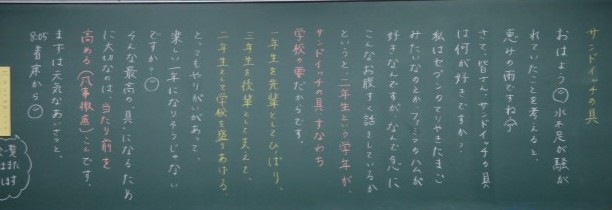 サンドイッチの具
おはよう 水不足が騒が
れていたことを考えると、
恵みの雨ですね
さて、皆さん、サンドイッチの具
は何が好きですか？
私はセブンのてりやきたまご
みたいなのとか、ファミマのハムが
好きなんですが、なんで急に
こんなお腹すく話をしているか
というと、二年生という学年が、
サンドイッチの具、すなわち
学校の要だからです。
一年生を先輩としてひっぱり、
三年生を後輩として支えて、
二年生として学校を盛りあげる、
とってもやりがいがあって、
楽しい一年になりそうじゃない
ですか
そんな最高の"具"になるため
に大切なのは、当たり前を
高める（凡事徹底）ことです。
まずは元気なあいさつと、
8:05着席から